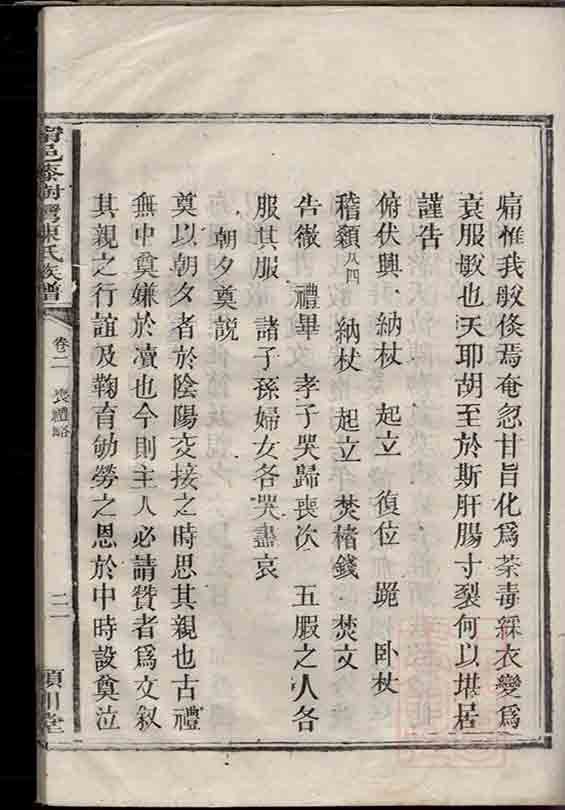 痛惟我 倐焉奄忽甘旨化爲荼毒綵衣變爲
衰服 也天耶胡至於斯肝腸寸裂何以堪居
謹告
俯伏興 納杖 起立 復位 跪 卧杖
稽顙四 納杖 起立 焚楮錢 焚文
告徹 禮畢 孝子哭歸喪次 五服之人各
服其服 諸子孫婦女各哭盡哀
朝夕奠說
奠以朝夕者於陰陽交接之時思其親也古禮
無中奠嫌於凟也今則主人必請贊者爲文叙
其親之行誼及鞠育劬勞之恩於中時設奠泣
甯邑 樹灣陳氏族譜
卷二 喪禮略
潁川堂